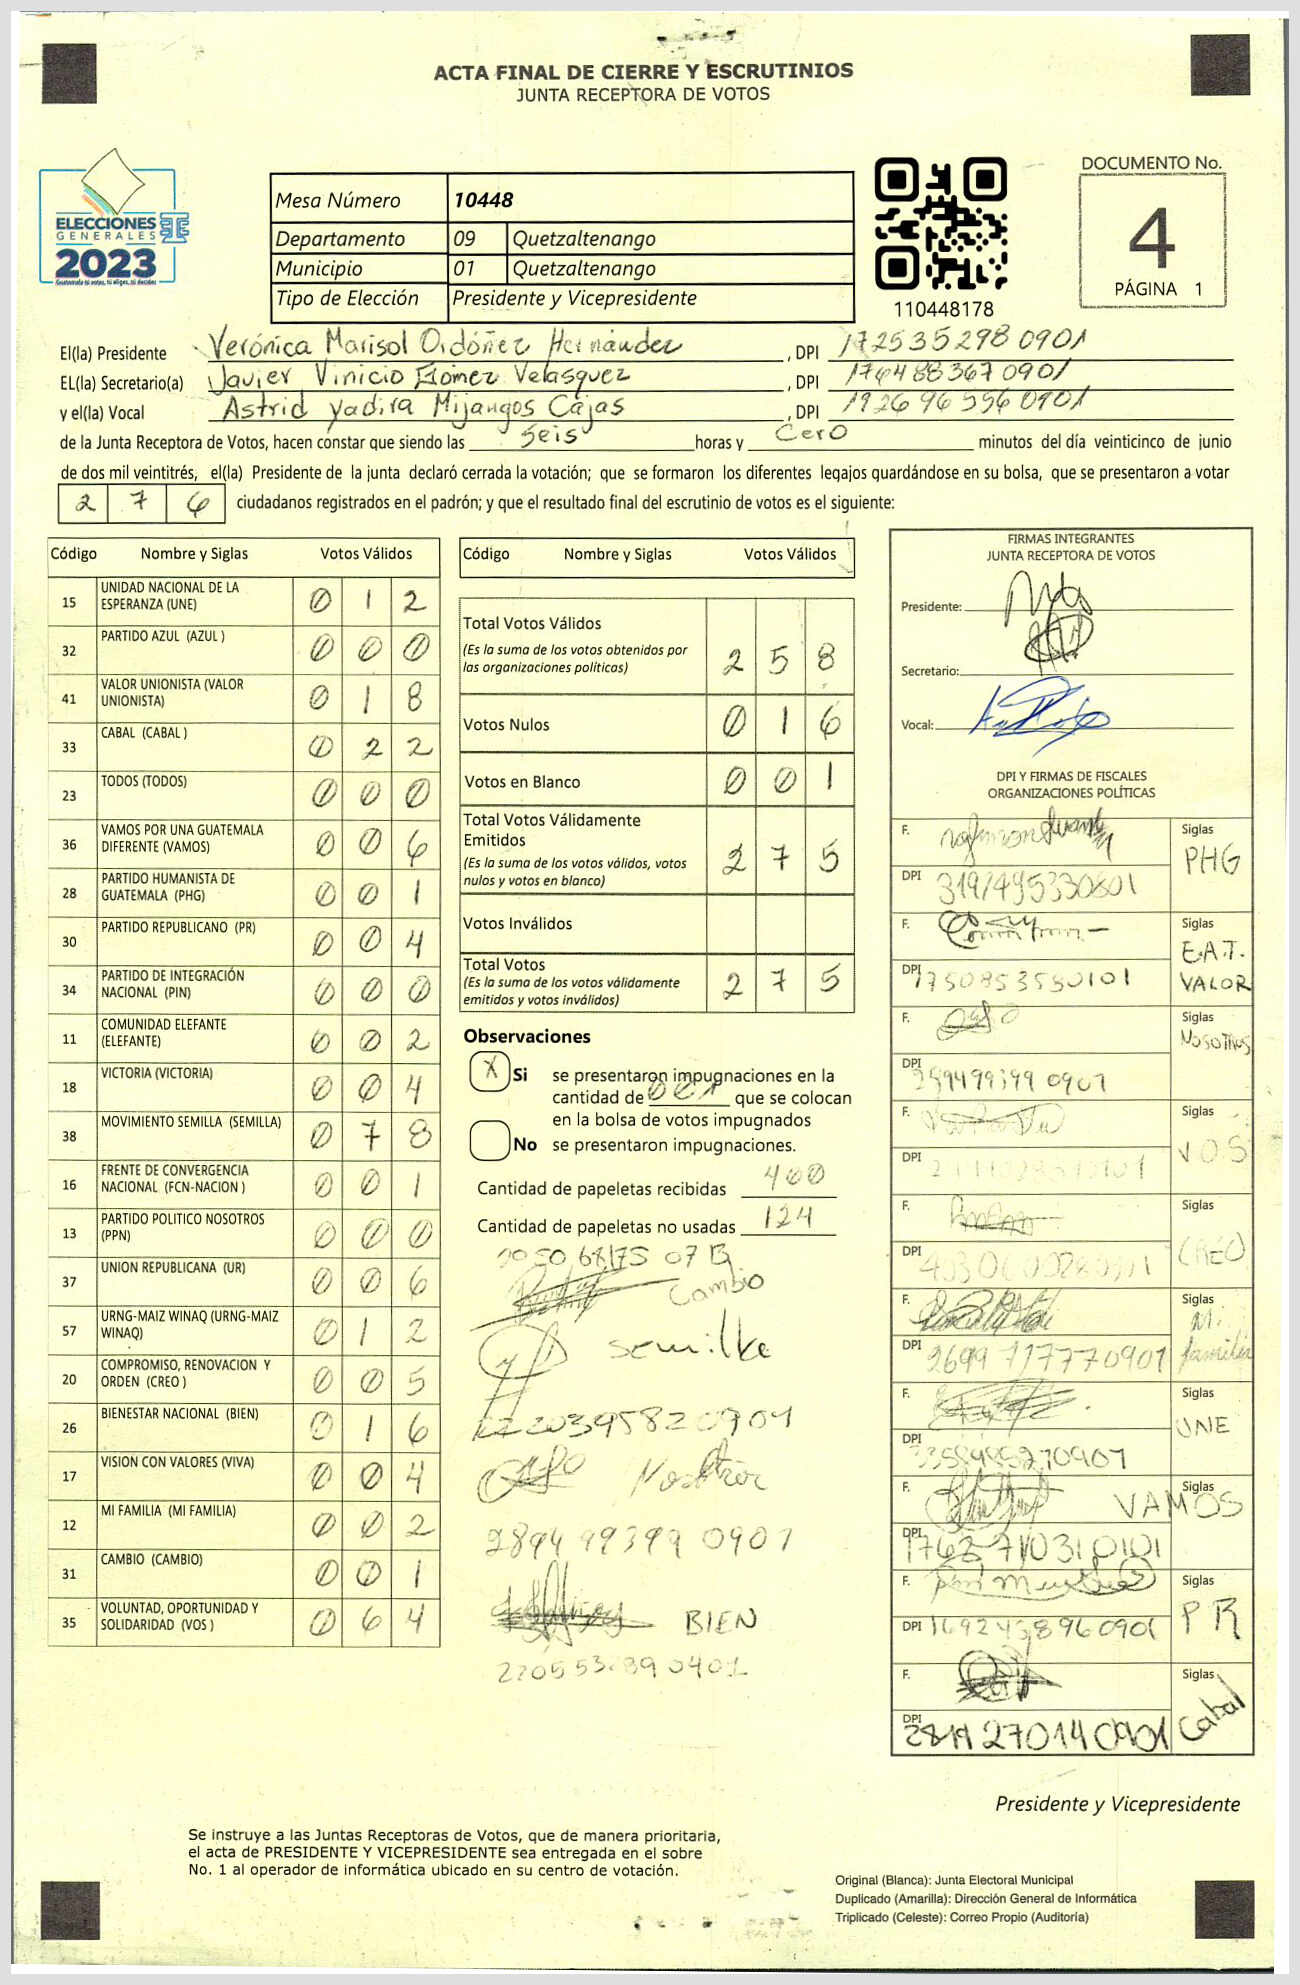 ACTA FINAL DE CIERRE Y ESCRUTINIOS
JUNTA RECEPTORA DE VOTOS
ELECCIONES
GENERALES
2023
Guatemala tú votas, tú eliges, tú decides
Mesa Número 10448
Departamento 09 Quetzaltenango
Municipio 01 Quetzaltenango
Tipo de Elección Presidente y Vicepresidente
110448178
DOCUMENTO No.
4
PÁGINA 1
El(la) Presidente Verónica Marisol Ordóñez Hernández, DPI 172535298 0901
EL(la) Secretario(a) Javier Vinicio Gómez Velasquez, DPI 176488367 0901
y el(la) Vocal Astrid Yadira Mijangos Cajas, DPI 192696556 0901
de la Junta Receptora de Votos, hacen constar que siendo las Seis horas y Cero minutos del día veinticinco de junio
de dos mil veintitrés, el(la) Presidente de la junta declaró cerrada la votación; que se formaron los diferentes legajos guardándose en su bolsa, que se presentaron a votar
2 7 6 ciudadanos registrados en el padrón; y que el resultado final del escrutinio de votos es el siguiente:
Código Nombre y Siglas Votos Válidos
15 UNIDAD NACIONAL DE LA ESPERANZA (UNE) 0 1 2
32 PARTIDO AZUL (AZUL ) 0 0 0
41 VALOR UNIONISTA (VALOR UNIONISTA) 0 1 8
33 CABAL (CABAL ) 0 2 2
23 TODOS (TODOS) 0 0 0
36 VAMOS POR UNA GUATEMALA DIFERENTE (VAMOS) 0 0 6
28 PARTIDO HUMANISTA DE GUATEMALA (PHG) 0 0 1
30 PARTIDO REPUBLICANO (PR) 0 0 4
34 PARTIDO DE INTEGRACIÓN NACIONAL (PIN) 0 0 0
11 COMUNIDAD ELEFANTE (ELEFANTE) 0 0 2
18 VICTORIA (VICTORIA) 0 0 4
38 MOVIMIENTO SEMILLA (SEMILLA) 0 7 8
16 FRENTE DE CONVERGENCIA NACIONAL (FCN-NACION ) 0 0 1
13 PARTIDO POLITICO NOSOTROS (PPN) 0 0 0
37 UNION REPUBLICANA (UR) 0 0 6
57 URNG-MAIZ WINAQ (URNG-MAIZ WINAQ) 0 1 2
20 COMPROMISO, RENOVACION Y ORDEN (CREO ) 0 0 5
26 BIENESTAR NACIONAL (BIEN) 0 1 6
17 VISION CON VALORES (VIVA) 0 0 4
12 MI FAMILIA (MI FAMILIA) 0 0 2
31 CAMBIO (CAMBIO) 0 0 1
35 VOLUNTAD, OPORTUNIDAD Y SOLIDARIDAD (VOS ) 0 6 4
Código Nombre y Siglas Votos Válidos
Total Votos Válidos
(Es la suma de los votos obtenidos por las organizaciones políticas) 2 5 8
Votos Nulos 0 1 6
Votos en Blanco 0 0 1
Total Votos Válidamente Emitidos
(Es la suma de los votos válidos, votos nulos y votos en blanco) 2 7 5
Votos Inválidos
Total Votos
(Es la suma de los votos válidamente emitidos y votos inválidos) 2 7 5
Observaciones
X Si se presentaron impugnaciones en la
cantidad de 001 que se colocan
en la bolsa de votos impugnados
No se presentaron impugnaciones.
Cantidad de papeletas recibidas 400
Cantidad de papeletas no usadas 124
Cambio
semilla
Nosotros
2894 99399 0901
BIEN
FIRMAS INTEGRANTES
JUNTA RECEPTORA DE VOTOS
Presidente:
Secretario:
Vocal:
DPI Y FIRMAS DE FISCALES
ORGANIZACIONES POLÍTICAS
F. Siglas PHG
DPI
F. Siglas E.A.T. VALOR
DPI 1750853580101
F. Siglas Nosotros
DPI
F. Siglas VOS
DPI
F. Siglas CREO
DPI
F. Siglas Mi familia
DPI 2699717770901
F. Siglas UNE
DPI
F. Siglas VAMOS
DPI
F. Siglas PR
DPI
F. Siglas Cabal
DPI
Presidente y Vicepresidente
Se instruye a las Juntas Receptoras de Votos, que de manera prioritaria,
el acta de PRESIDENTE Y VICEPRESIDENTE sea entregada en el sobre
No. 1 al operador de informática ubicado en su centro de votación.
Original (Blanca): Junta Electoral Municipal
Duplicado (Amarilla): Dirección General de Informática
Triplicado (Celeste): Correo Propio (Auditoría)